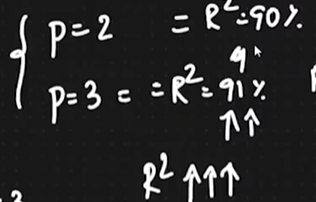 p=2 = R²=90%.
9
p=3 = =R²=91%
↑↑
R² ↑↑↑